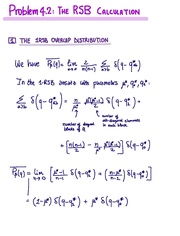 Problem 4.2: The RSB Calculation
1 The 1RSB Overlap Distribution
We have P(q) = lim n→0 2/n(n-1) Σ a>b δ(q-Q*ab)
In the 1-RSB ansatz with parameters μ*, q*1, q*0
Σ a>b δ(q-Q*ab) = n/μ* μ*(μ*-1)/2 δ(q-q*1) +
number of diagonal blocks of Q
number of off-diagonal elements in each block
+ [n(n-1)/2 - n/μ* μ*(μ*-1)/2] δ(q-q*0)
P(q) = lim n→0 [μ*-1/n-1 δ(q-q*1) + (n-μ*/n-1) δ(q-q*0)]
= (1-μ*) δ(q-q*1) + μ* δ(q-q*0)